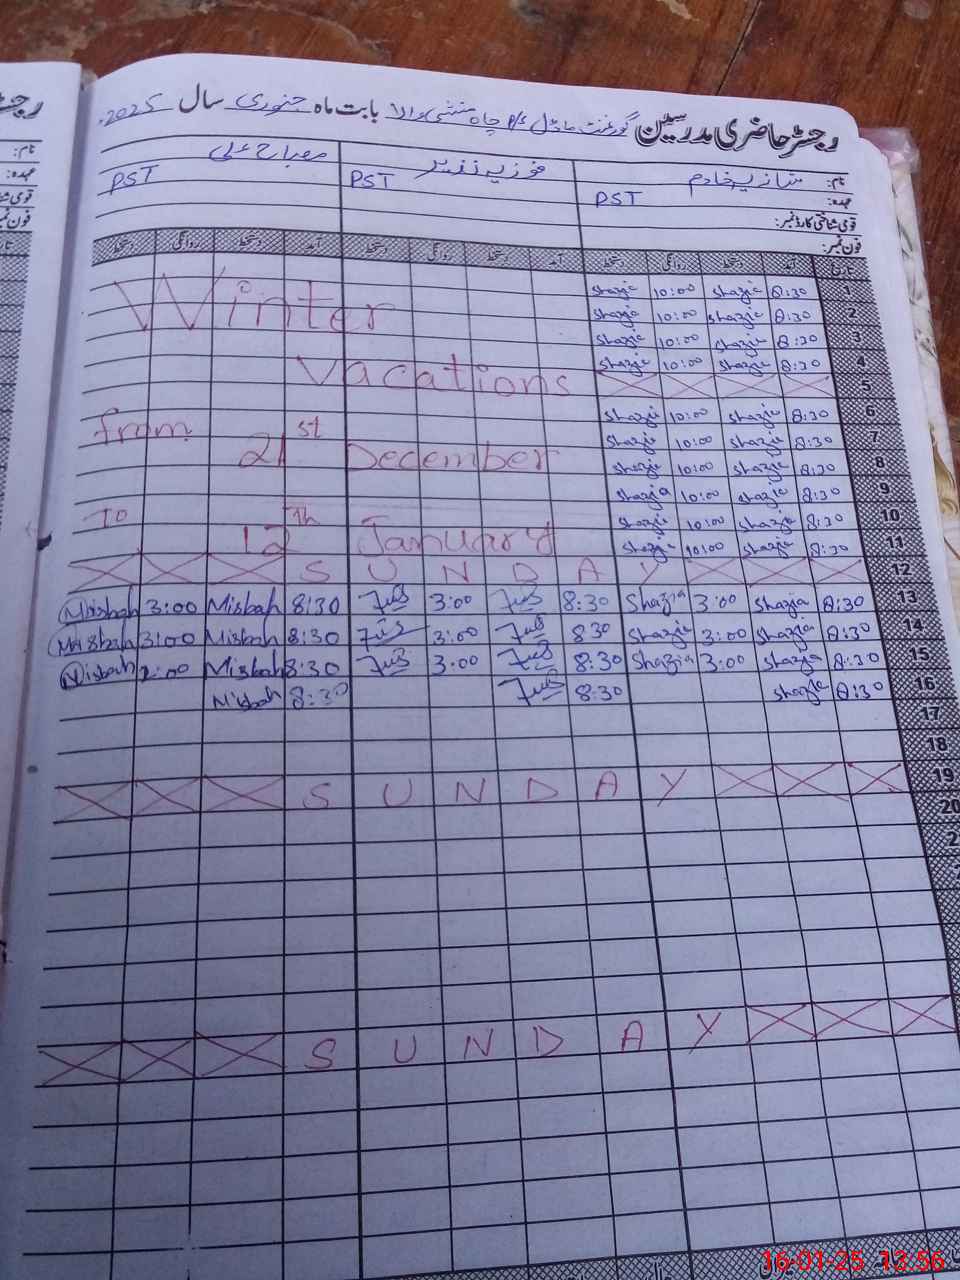 رجسٹر حاضری مدرسین گورنمنٹ ماڈل p/s چاہ منشی والا بابت ماہ جنوری سال 2025.
نام: شازیہ خادم فوزیہ مصباح علی
عہدہ: PST PST PST
قومی شناختی کارڈ نمبر:
فون نمبر:
تاریخ آمد دستخط روانگی دستخط آمد دستخط روانگی دستخط آمد دستخط روانگی دستخط
Shazia 10:00 Shazia 8:30 1
Winter Shazia 10:00 Shazia 8:30 2
Shazia 10:00 Shazia 8:30 3
Shazia 10:00 Shazia 8:30 4
Vacations 5
Shazia 10:00 Shazia 8:30 6
from Shazia 10:00 Shazia 8:30 7
21st December Shazia 10:00 Shazia 8:30 8
Shazia 10:00 Shazia 8:30 9
To Shazia 10:00 Shazia 8:30 10
12th January Shazia 10:00 Shazia 8:30 11
S U N D A Y 12
Misbah 3:00 Misbah 8:30 3:00 8:30 Shazia 3:00 Shazia 8:30 13
Misbah 3:00 Misbah 8:30 3:00 830 Shazia 3:00 Shazia 8:30 14
Misbah 2:00 Misbah 8:30 3:00 8:30 Shazia 3:00 Shazia 8:30 15
Misbah 8:30 8:30 Shazia 8:30 16
17
18
S U N D A Y 19
20
2
S U N D A Y
16-01-25 13:56